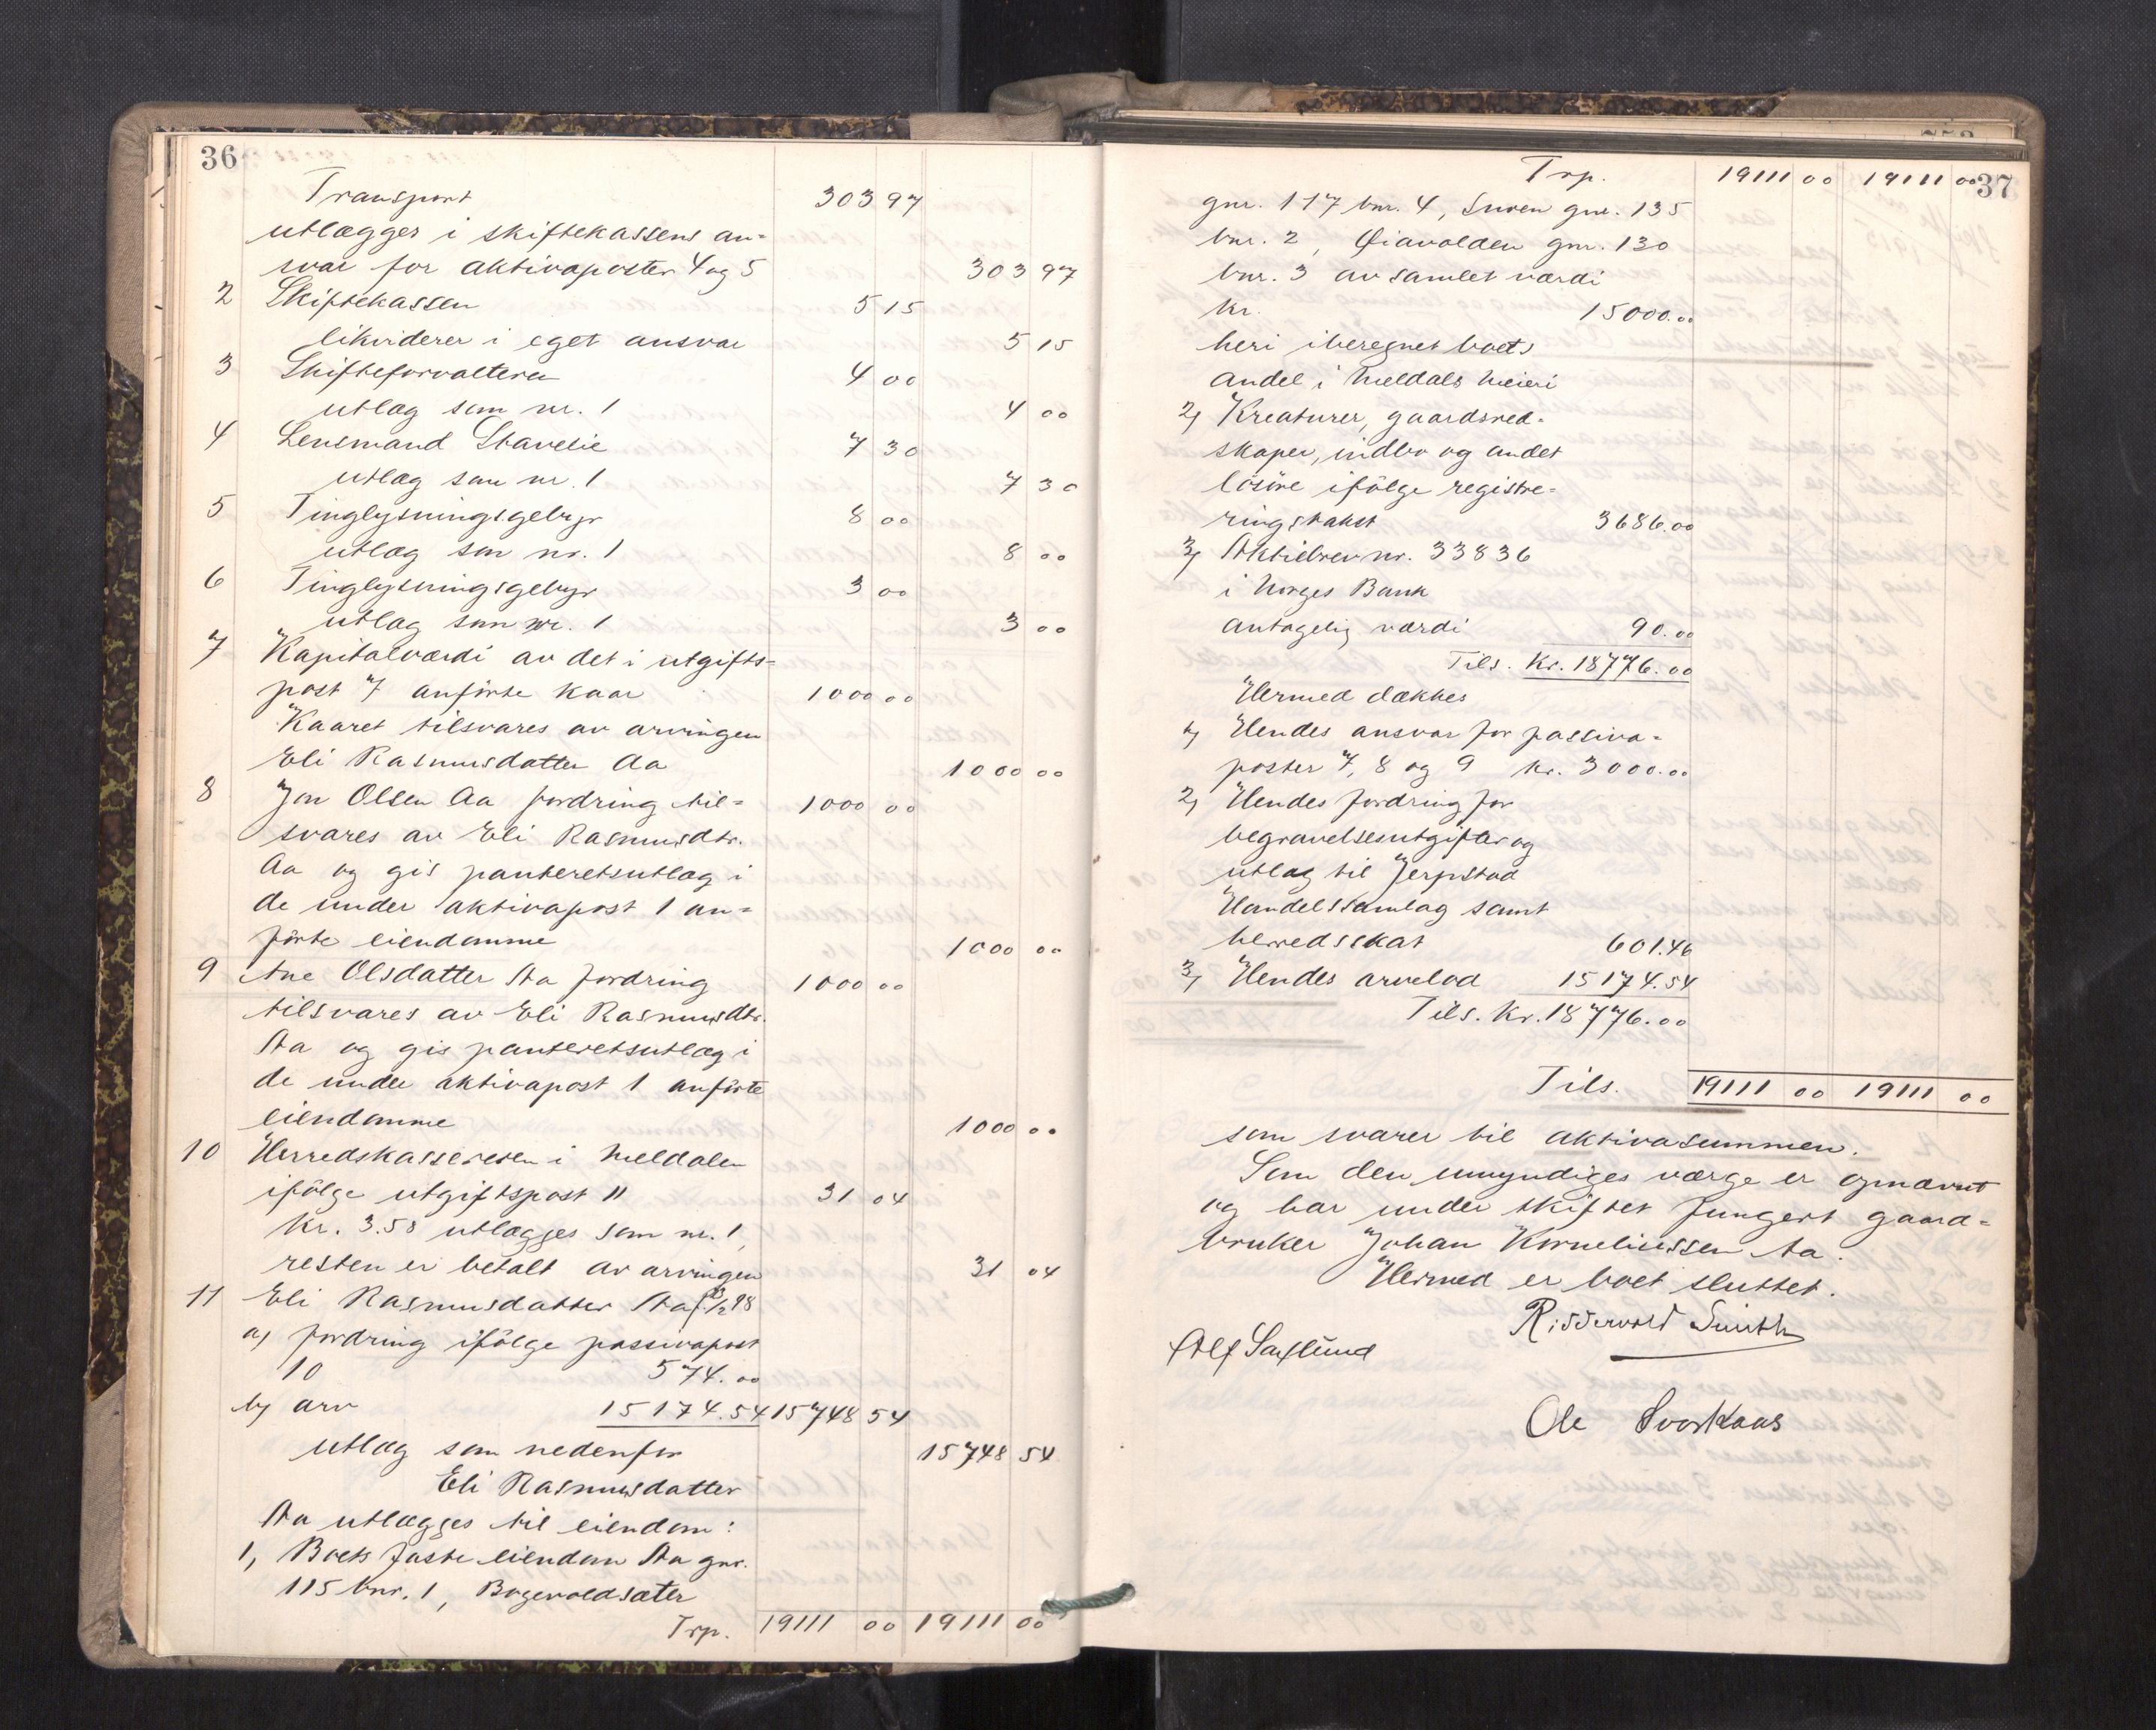 36
Transport 303 97
utlægges i skiftekassens an-
svar for aktivaposter 4 og 5 303 97
2 Skiftekassen 5 15
likviderer i eget ansvar 5 15
3 Skifteforvalteren 4 00
utlæg som nr. 1 4 00
4 Lensmand Stavelie 7 30
utlæg som nr. 1 7 30
5 Tinglysningsgebyr 8 00
utlæg som nr. 1 8 00
6 Tinglysningsgebyr 3 00
utlæg som nr. 1 3 00
7 Kapitalværdi av det i utgifts-
post 7 anførte kaar 1000 00
Kaaret tilsvares av arvingen
Eli Rasmusdatter Aa 1000 00
8 Jon Olsen Aa fordring til- 1000 00
svares av Eli Rasmusdtr.
Aa og gis panteretsutlæg i
de under aktivapost 1 an-
førte eiendomme 1000 00
9 Ane Olsdatter Aa fordring 1000 00
tilsvares av Eli Rasmusdtr.
Aa og gis panteretsutlæg i
de under aktivapost 1 anførte
eiendomme 1000 00
10 Herredskassereren i Meldalen
ifølge utgiftspost 11 31 04
kr. 3.58 utlægges som nr. 1,
resten er betalt av arvingen 31 04
11 Eli Rasmusdatter Aa f. /2 98
a, fordring ifølge passivapost
10 574.00
b, arv 15174.54 15748 54
utlæg som nedenfor 15748 54
Eli Rasmusdatter
Aa utlægges til eiendom:
1, Boets faste eiendom Aa gnr.
115 bnr. 1, Bogevoldsæter
Trp. 19111 00 19111 00
37
Trp. 19111 00 19111 00
gnr. 117 bnr. 4, Snoen gnr. 135
bnr. 2, Øiavolden gnr. 130
bnr. 3 av samlet værdi
kr. 15000.00
heri iberegnet boets
andel i Meldals Meieri
2, Kreaturer, gaardsred-
skaper, indbo og andet
løsøre ifølge registre-
ringstakst 3686.00
3, Aktiebrev nr. 33836
i Norges Bank
antagelig værdi 90.00
Tils. Kr. 18776.00
Hermed dækkes
1, Hendes ansvar for passiva-
poster 7, 8 og 9 kr. 3000.00
2, Hendes fordring for
begravelsesutgifter og
utlæg til Jerpstad
Handelssamlag samt
herredsskat 601.46
3, Hendes arvelod 15174.54
Tils. Kr. 18776.00
Tils. 19111 00 19111 00
som svarer til aktivasummen.
Som den umyndiges værge er opnævnt
og har under skiftet fungert gaard-
bruker Johan Korneliussen Aa.
Hermed er boet sluttet.
Riddervold Smith
Alf Saxlund
Ole Svorkaas